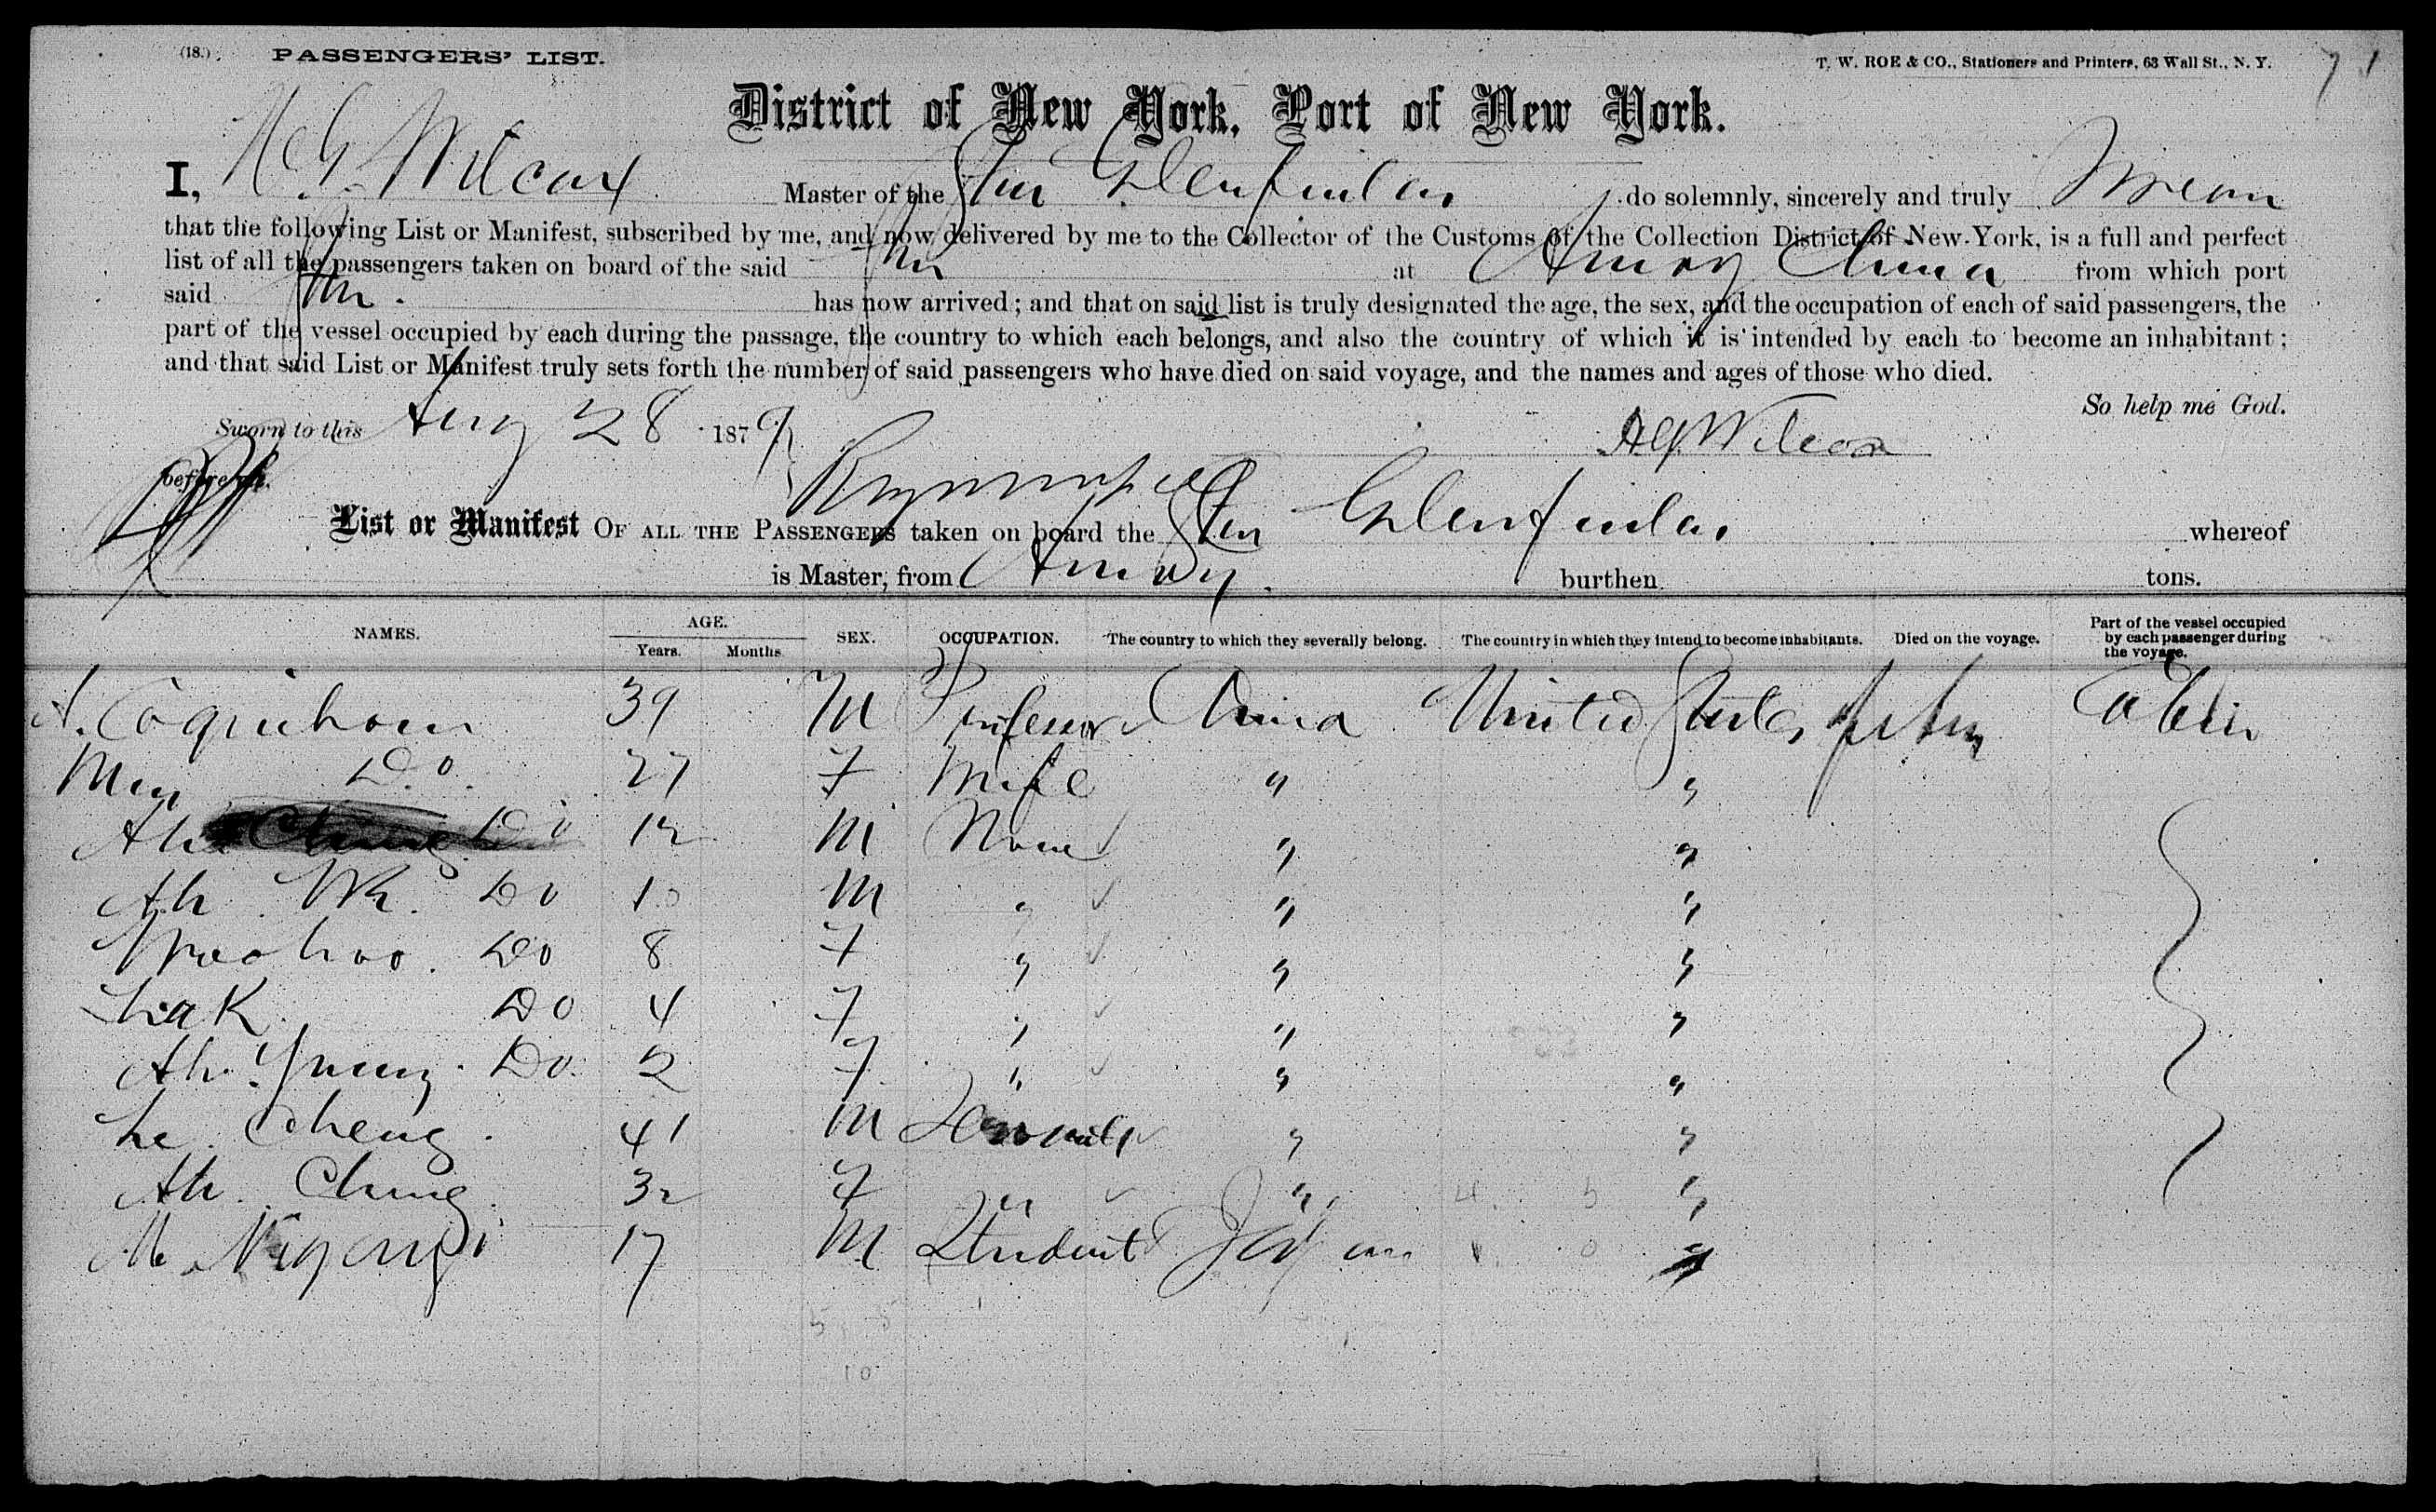 (18.) PASSENGERS' LIST.
T. W. ROE & CO., Stationers and Printers, 63 Wall St., N. Y.
District of New York, Port of New York.
I, H G Wilcox Master of the Str Glenfinlas do solemnly, sincerely and truly Swear
that the following List or Manifest, subscribed by me, and now delivered by me to the Collector of the Customs of the Collection District of New-York, is a full and perfect
list of all the passengers taken on board of the said Str at Amoy China from which port
said Str. has now arrived; and that on said list is truly designated the age, the sex, and the occupation of each of said passengers, the
part of the vessel occupied by each during the passage, the country to which each belongs, and also the country of which it is intended by each to become an inhabitant;
and that said List or Manifest truly sets forth the number of said passengers who have died on said voyage, and the names and ages of those who died.
So help me God.
Sworn to this Aug 28 1879
HG Wilcox
before me,
List or Manifest OF ALL THE PASSENGERS taken on board the Str Glenfinlas whereof
is Master, from Amoy. burthen tons.
NAMES. AGE. Years. Months. SEX. OCCUPATION. The country to which they severally belong. The country in which they intend to become inhabitants. Died on the voyage. Part of the vessel occupied by each passenger during the voyage.
39 M Professor China United States Cabin
Do. 27 F Wife " "
Ah Do 12 M None " "
Ah Do 10 M " " "
Do 8 F " " "
Do 4 F " " "
Ah Do. 2 F " " "
Cheng. 41 M " "
Ah. Ching. 32 F " " "
M 17 M Student Japan "
5 5
10